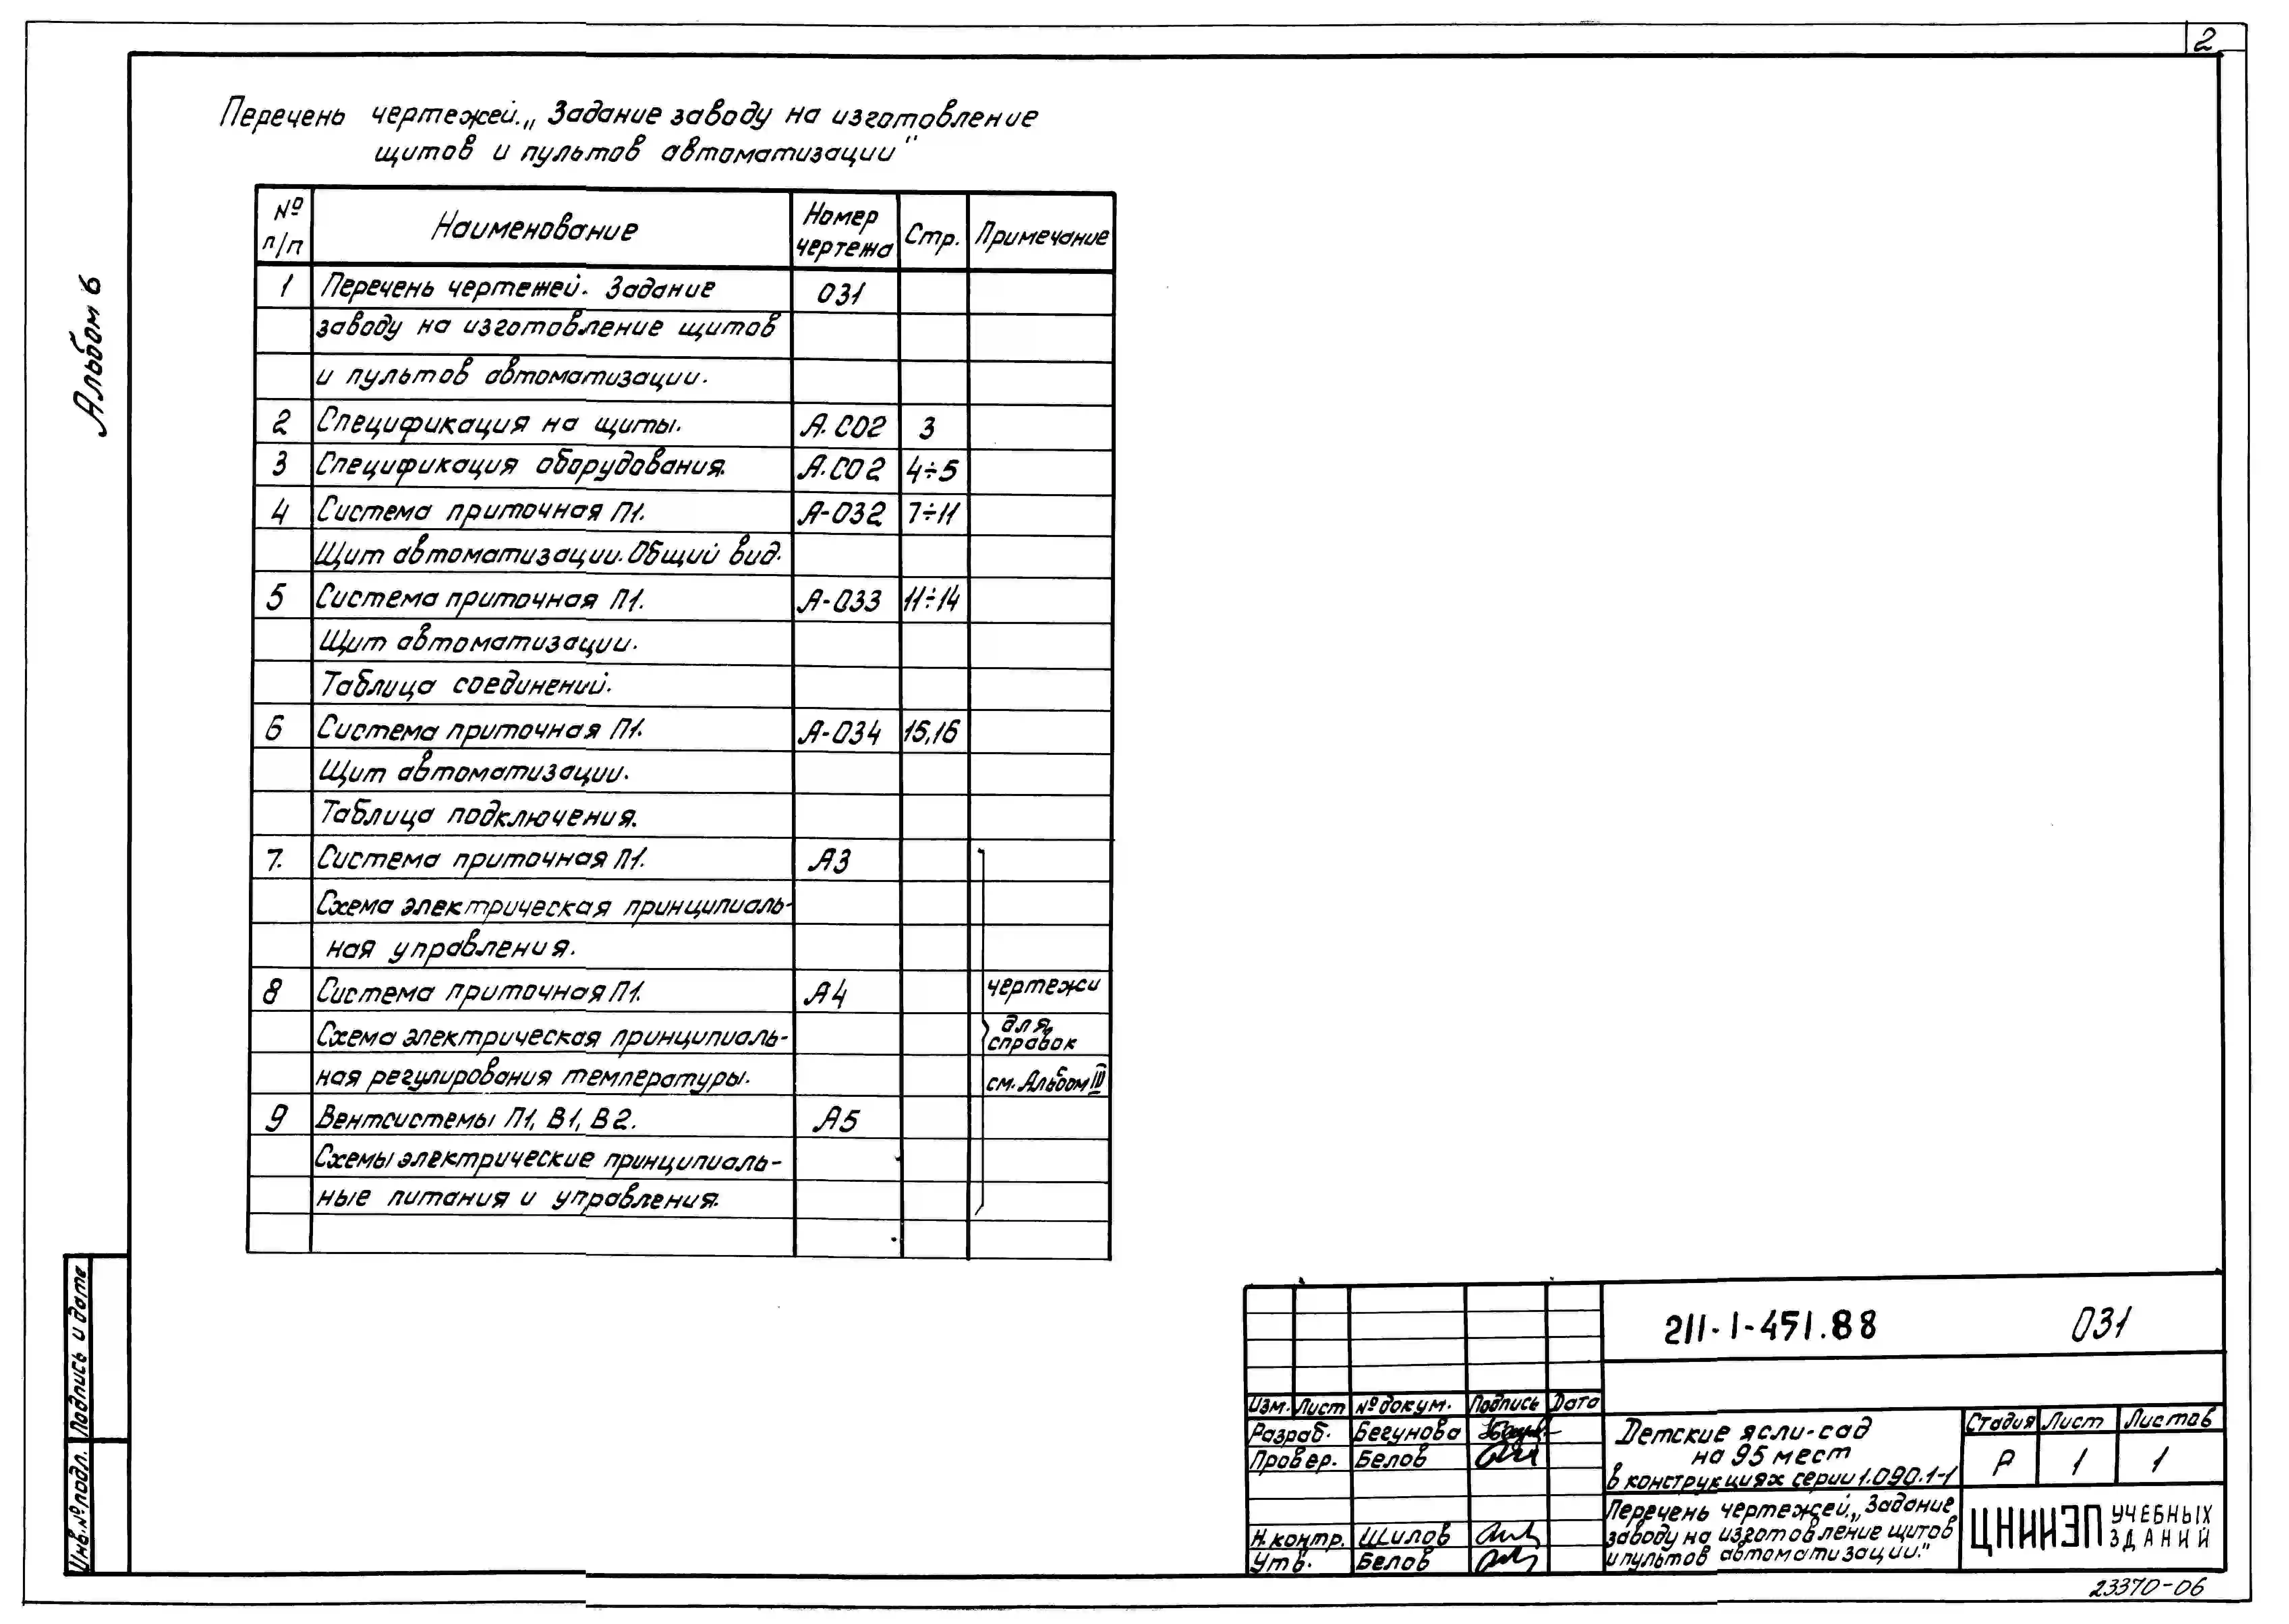 2
Альбом 6
Перечень чертежей. „Задание заводу на изготовление
щитов и пультов автоматизации"
№ п/п Наименование Номер чертежа Стр. Примечание
1 Перечень чертежей. Задание 031
заводу на изготовление щитов
и пультов автоматизации.
2 Спецификация на щиты. А.СО2 3
3 Спецификация оборудования. А.СО2 4÷5
4 Система приточная П1. А-032 7÷11
Щит автоматизации. Общий вид.
5 Система приточная П1. А-033 11÷14
Щит автоматизации.
Таблица соединений.
6 Система приточная П1. А-034 15,16
Щит автоматизации.
Таблица подключения.
7. Система приточная П1. А3
Схема электрическая принципиаль-
ная управления.
8 Система приточная П1. А4 чертежи
Схема электрическая принципиаль- для справок
ная регулирования температуры. см. Альбом III
9 Вентсистемы П1, В1, В2. А5
Схемы электрические принципиаль-
ные питания и управления.
211-1-451.88 031
Изм. Лист № докум. Подпись Дата
Разраб. Бегунова
Провер. Белов
Н.контр. Шилов
Утв. Белов
Детские ясли-сад
на 95 мест
в конструкциях серии 1.090.1-1
Стадия Лист Листов
Р 1 1
Перечень чертежей. „Задание
заводу на изготовление щитов
и пультов автоматизации."
ЦНИИЭП УЧЕБНЫХ ЗДАНИЙ
Подпись и дата
Инв.№ подл.
23370-06